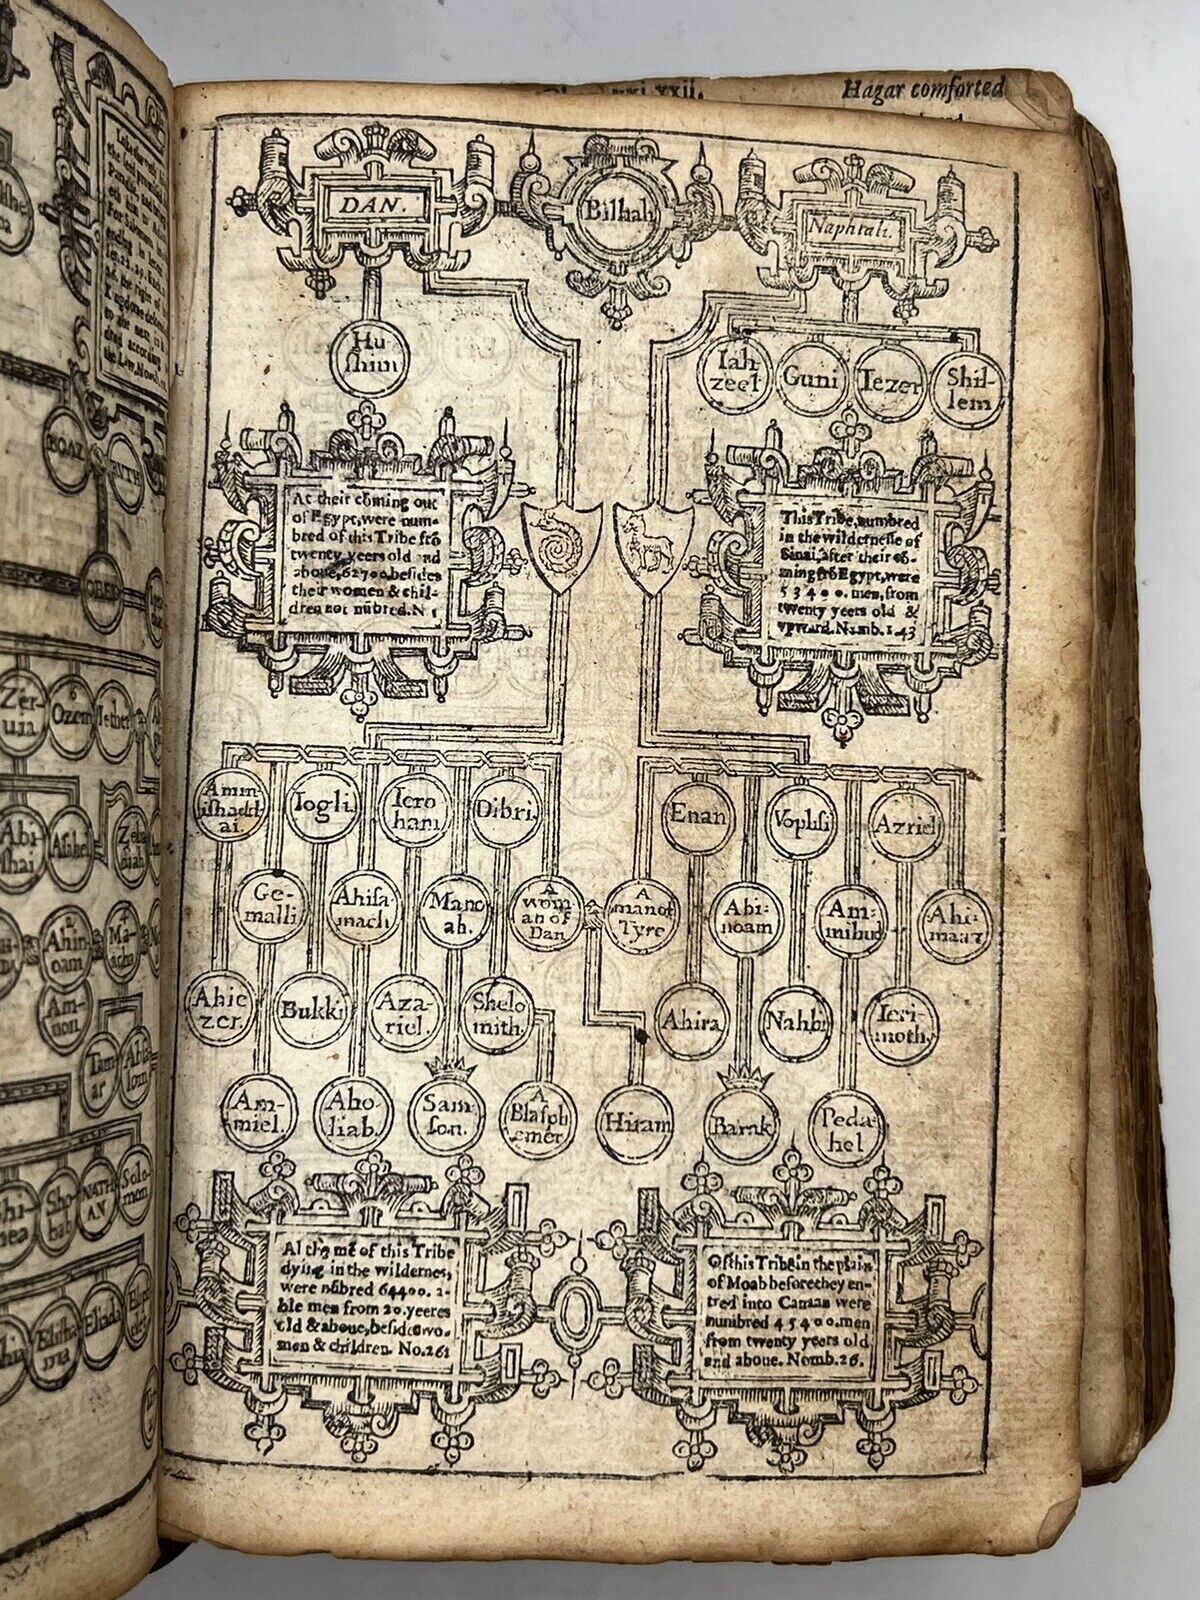 xxii.
Hagar comforted
DAN.
Bilhah
Naphtali.
Hu-
shim
Iah
zeel
Guni
Iezer
Shil-
lem
At their cōming out
of Egypt, were num-
bred of this Tribe frō
twenty yeers old and
aboue, 62700. besides
their women & chil-
dren not nūbred. N 1
This Tribe, numbred
in the wildernesse of
Sinai, after their cō-
ming frō Egypt, were
53400. men, from
twenty yeers old &
vpward. Numb. 1.43
Amm
ishadd
ai.
Iogli.
Iero
ham
Dibri.
Enan
Vophsi
Azriel
Ge-
malli
Ahisa-
mach
Mano
ah.
A
wom
an of
Dan.
A
man of
Tyre
Abi-
noam
Am-
mihud
Ahi-
maaz
Ahie
zer.
Bukki
Aza-
riel.
Shelo
mith.
Ahira
Nahbi
Ieri-
moth.
Am-
miel.
Aho-
liab.
Sam-
son.
A
Blasph
emer
Hiram
Barak
Peda-
hel
Al the mē of this Tribe
dying in the wildernes,
were nūbred 64400. a-
ble men from 20. yeeres
old & aboue, besides wo-
men & children. No. 26
Of this Tribe in the plain
of Moab before they en-
tred into Canaan were
numbred 45400. men
from twenty yeers old
and aboue. Nomb. 26.
BOAZ
RUTH
OBED
Zer-
uia
6
Ozem
Iether
Abi-
shai
Asahel
2
Ahin
oam
4
Ma-
acha
Am-
non.
Tam-
ar
Absa
lom
Sho-
bab
NATH-
AN
Solo-
mon
Elisha-
ma
Eliada